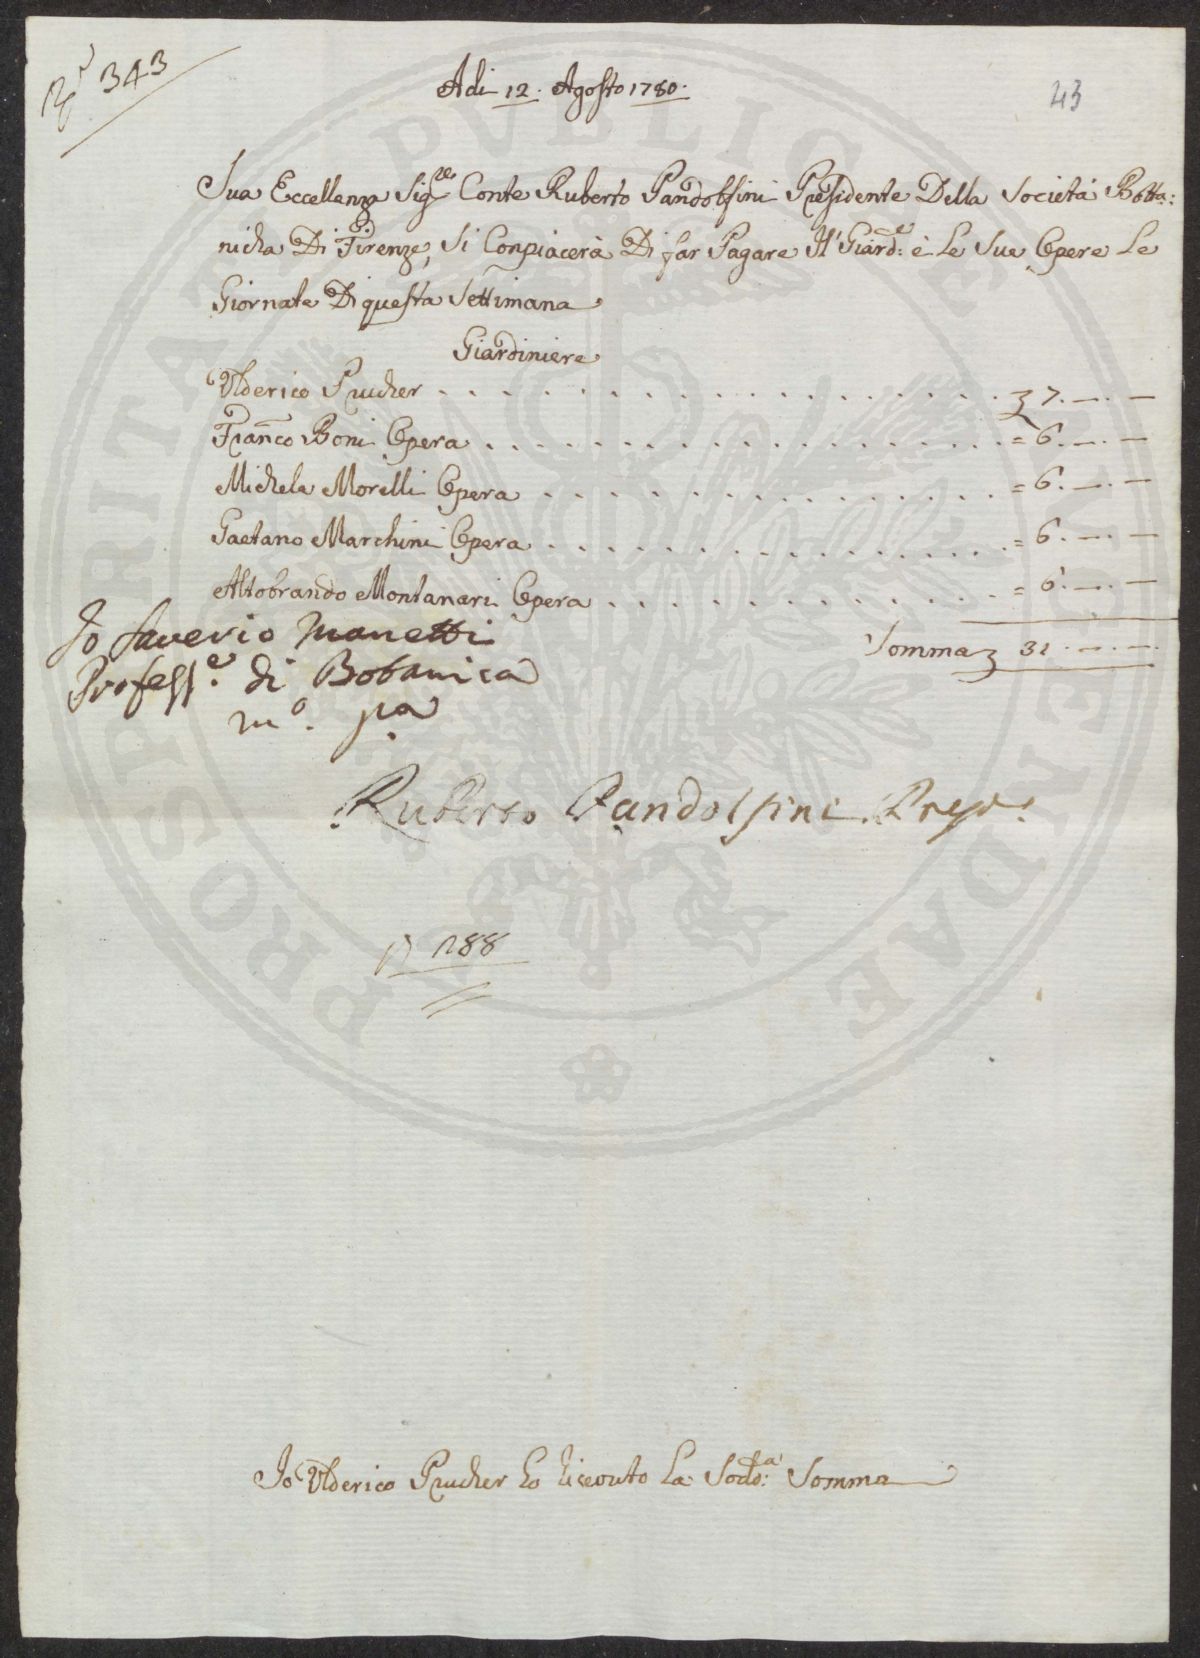 N.r 343
Adi 12. Agosto 1780.
43
Sua Eccellenza Sig.re Conte Ruberto Pandolfini Presidente Della Società Botta:
nicha Di Firenze, Si Conpiacerà Di far Pagare Il Giard:e è Le Sue Opere Le
Giornate Di questa Settimana
Giardiniere
Ulderico Prucher . . . . . . . . . . . . . . . . . 7. —. —
Franco Boni Opera . . . . . . . . . . . . . . . . = 6. —. —
Michele Morelli Opera . . . . . . . . . . . . . . = 6. —. —
Gaetano Marchini Opera . . . . . . . . . . . . . = 6. —. —
Altobrando Montanari Opera . . . . . . . . . . . = 6. —. —
Somma 31. —. —.
Io Saverio Manetti
Profess.e di Botanica
m.o p.a
Ruberto Pandolfini Presi.
1788
Io Ulderico Prucher ho riceuto La Sod:a Somma
PROSPERITATI PVBLICAE AVGENDAE